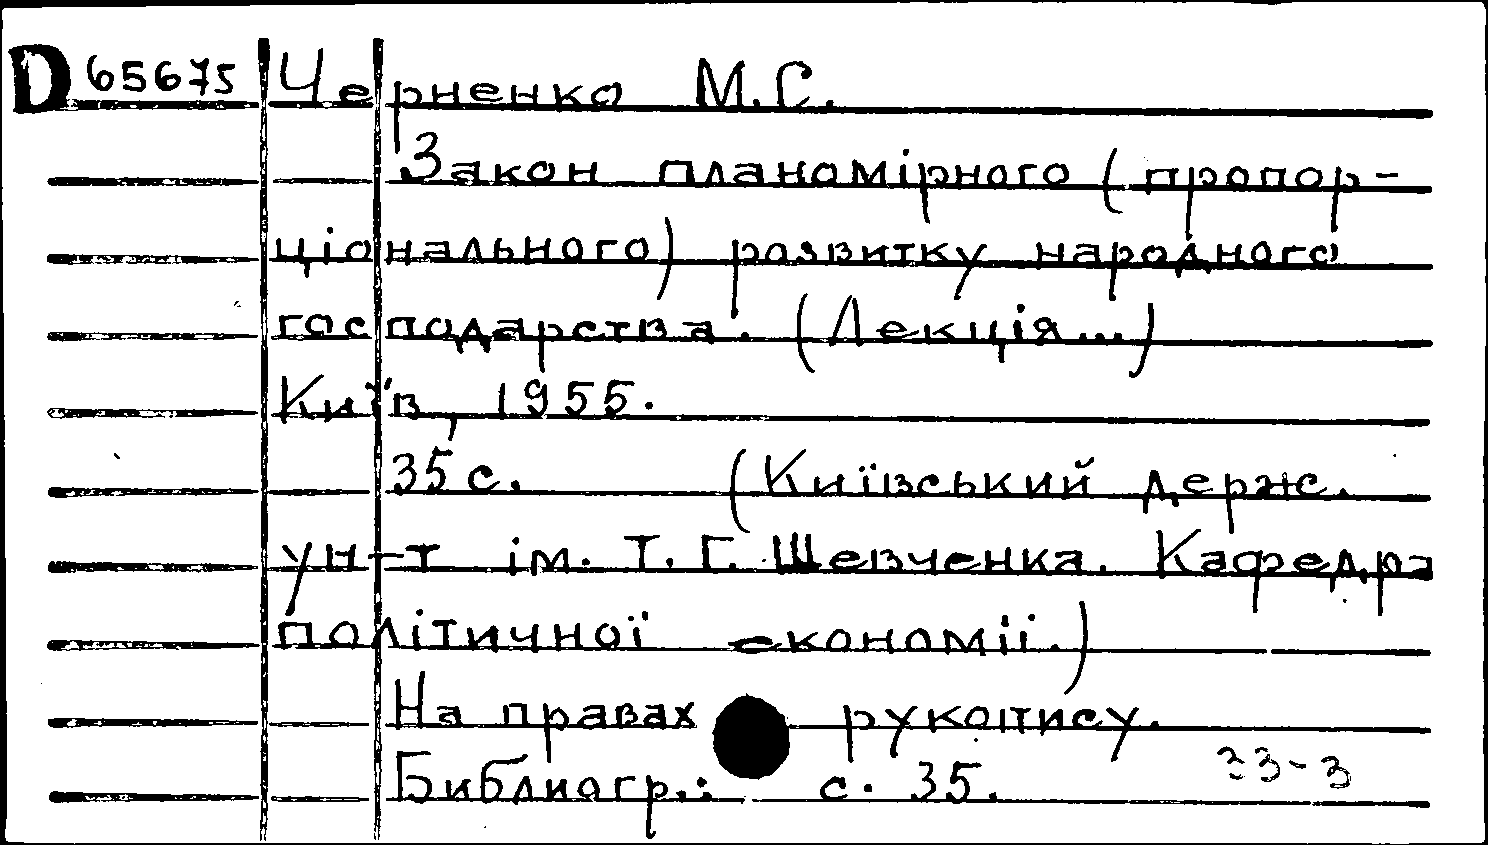 D 65675 Черненко М.С.
Закон планомірного (пропор-
ціонального) розвитку народного
господарства. (Лекція...)
Київ, 1955.
35 с. (Київський держ.
ун-т ім. Т. Г. Шевченка. Кафедра
політичної економії.)
На правах рукопису.
Библиогр.: с. 35. 33-3